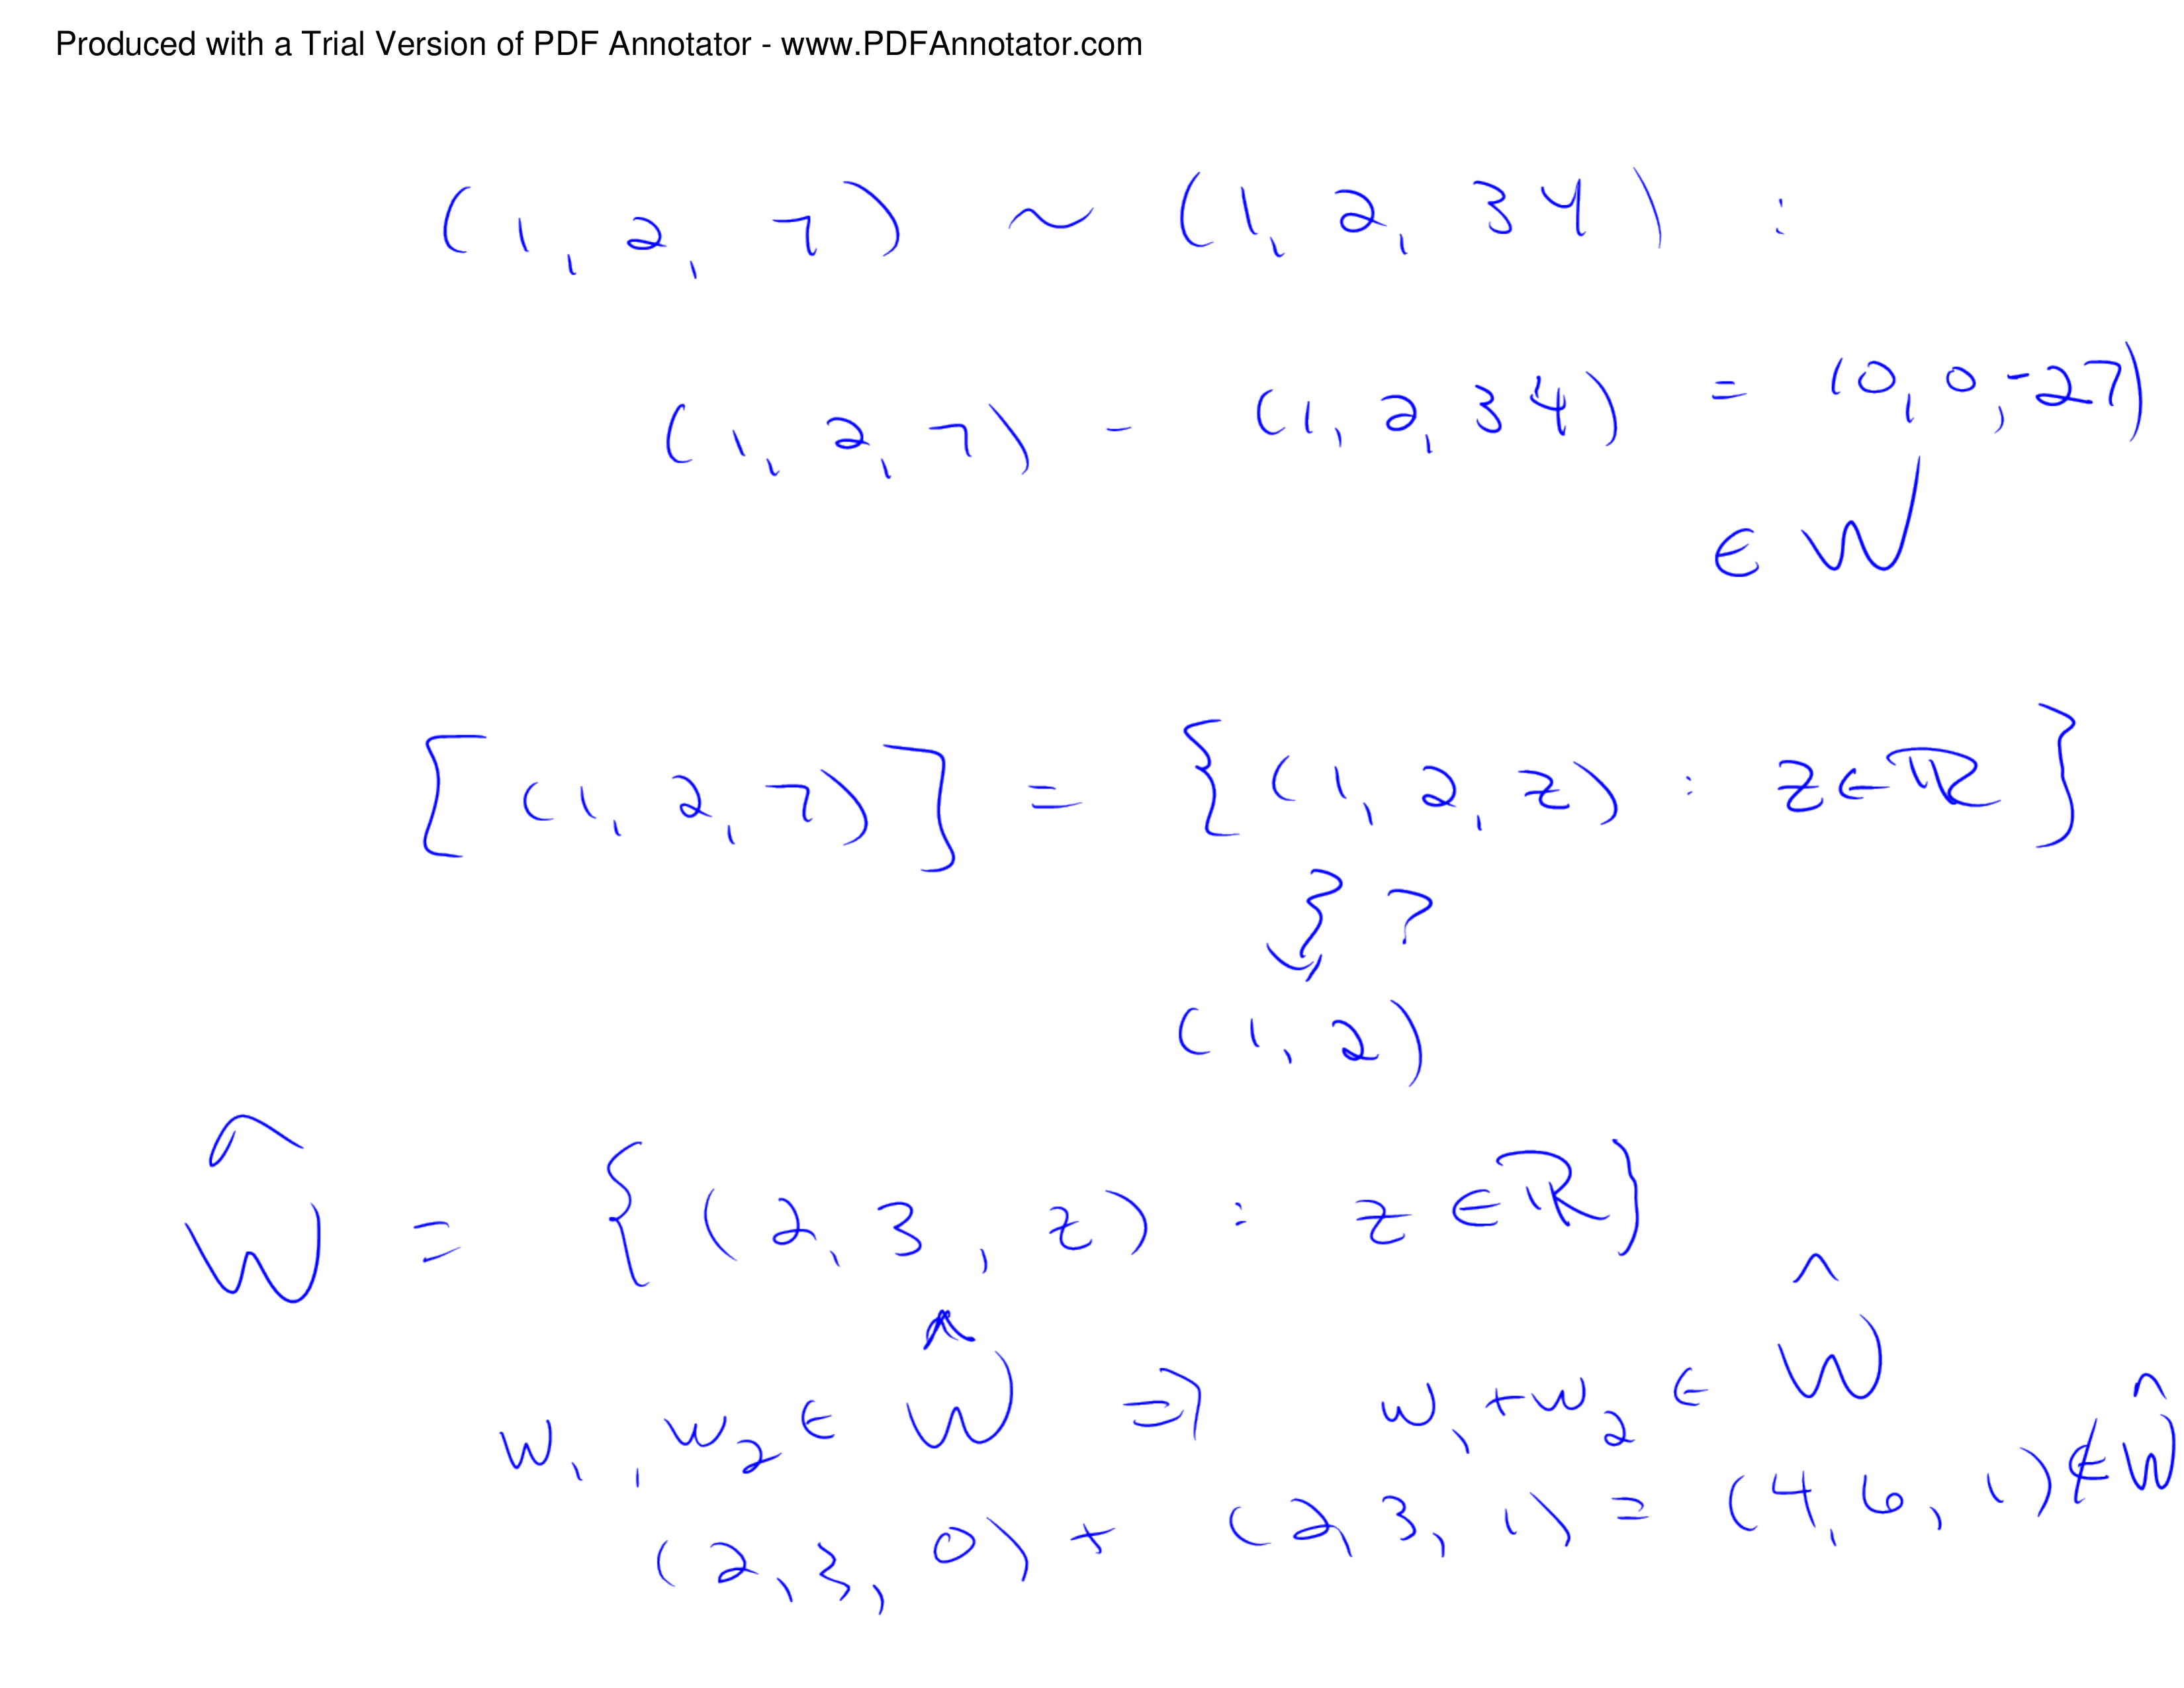 Produced with a Trial Version of PDF Annotator - www.PDFAnnotator.com
(1, 2, 7) ~ (1, 2, 34) :
(1, 2, 7) - (1, 2, 34) = (0, 0, -27)
∈ W
[(1, 2, 7)] = {(1, 2, z) : z ∈ ℝ}
?
(1, 2)
Ŵ = {(2, 3, z) : z ∈ ℝ}
w₁, w₂ ∈ Ŵ ⇒ w₁ + w₂ ∈ Ŵ
(2, 3, 0) + (2, 3, 1) = (4, 6, 1) ∉ Ŵ